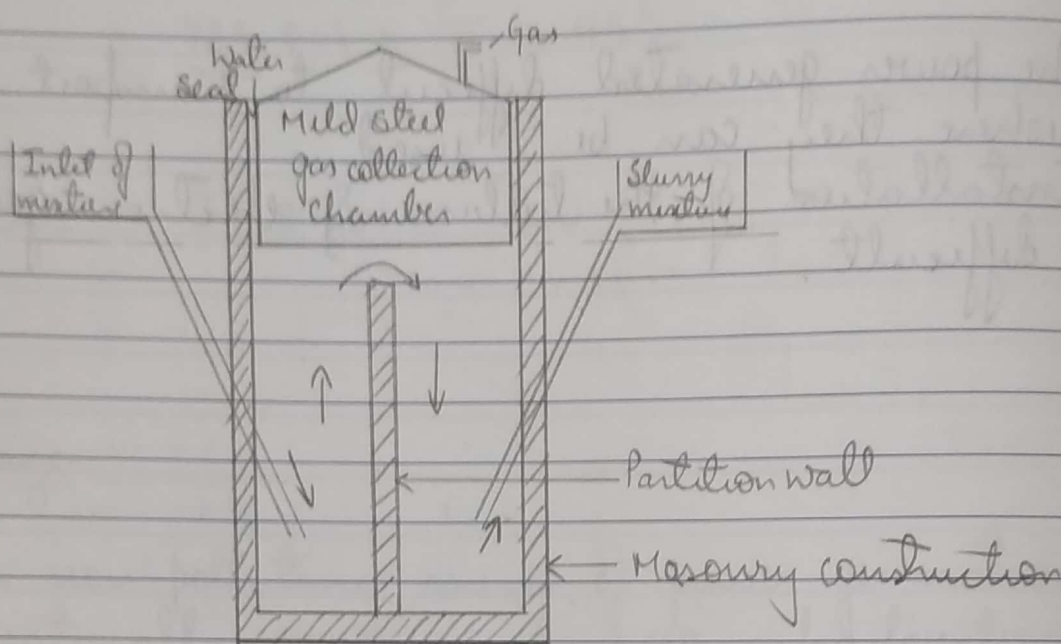 Water
seal
Gas
Mild steel
gas collection
chamber
Inlet of
mixture
Slurry
mixture
Partition wall
Masonry construction